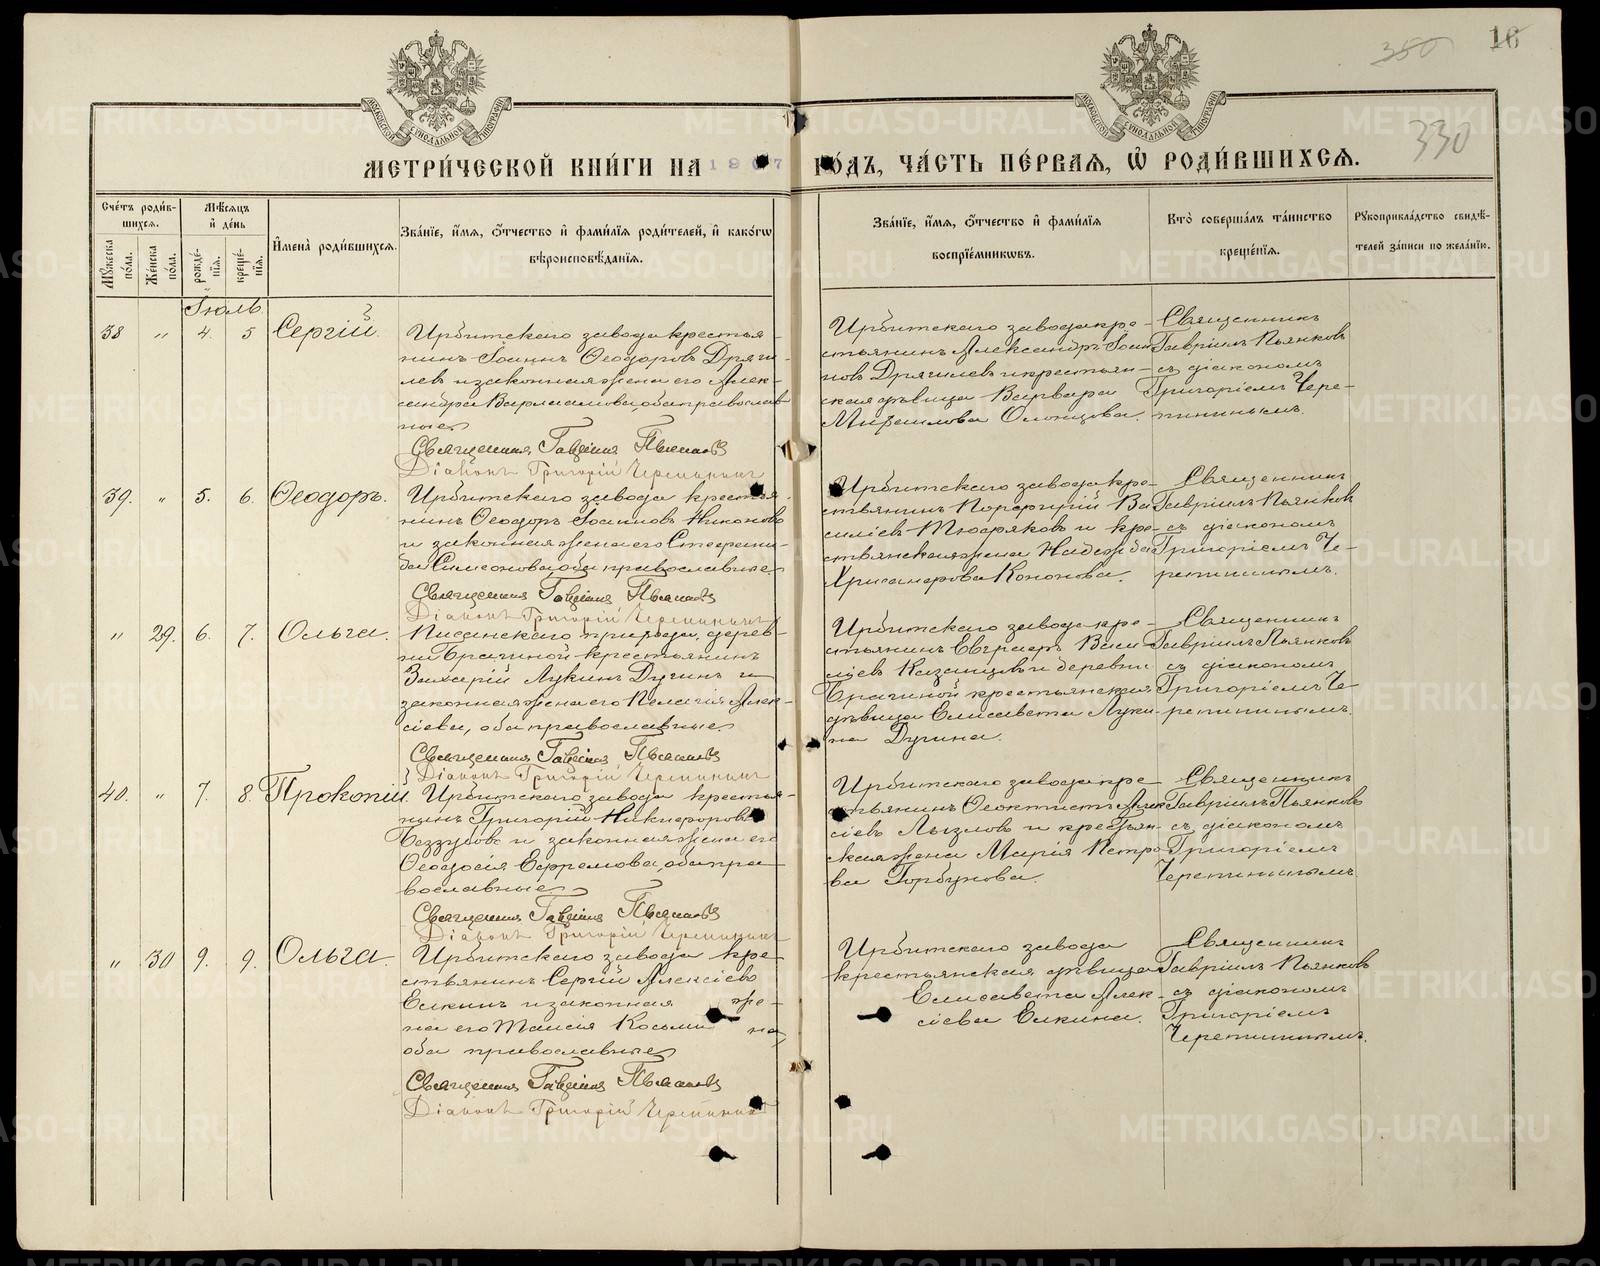 350 16
330
МОСКОВСКОЙ СѴНОДАЛЬНОЙ ТИПОГРАФІИ
МОСКОВСКОЙ СѴНОДАЛЬНОЙ ТИПОГРАФІИ
МЕТРИ́ЧЕСКОЙ КНИ́ГИ НА 1907 ГО́ДЪ, ЧА́СТЬ ПЕ́РВАѦ, Ѡ҆ РОДИ́ВШИХСѦ.
Счетъ роди́в-
шихся.
Мѣ́сяцъ
и҆ де́нь
Мꙋ́жеска по́ла.
Же́нска по́ла.
рожде́-
нїя.
креще́-
нїя.
И҆мена̀ роди́вшихся.
Зва́нїе, и҆́мя, ѻ҆́тчество и҆ фами́лїя роди́телей, и҆ како́гѡ
вѣроисповѣ́данїя.
Зва́нїе, и҆́мя, ѻ҆́тчество и҆ фами́лїя
воспрїе́мниковъ.
Кто̀ соверша́лъ та́инство
креще́нїя.
Рꙋкоприкла́дство свидѣ́-
телей за́писи по жела́нїю.
Іюль
38 „ 4. 5 Сергій.
Ирбитскаго завода крестья-
нинъ Іоаннъ Ѳеодоровъ Дрягі-
левъ и законная жена его Алек-
сандра Варлаамова, оба православ
ные.
Священникъ Гавріилъ Пьянковъ
Діаконъ Григорій Черепининъ
Ирбитскаго завода кре-
стьянинъ Александръ Іоан
новъ Дрягилевъ и крестьян-
ская дѣвица Варвара
Михаилова Олонцова.
Священникъ
Гавріилъ Пьянковъ
съ діакономъ
Григоріемъ Чере-
пининымъ.
39. „ 5. 6. Ѳеодоръ.
Ирбитскаго завода крестья-
нинъ Ѳеодоръ Іоанновъ Никоновъ
и законная жена его Стефани-
да Симеонова, оба православные.
Священникъ Гавріилъ Пьянковъ
Діаконъ Григорій Черепининъ
Ирбитскаго завода кре-
стьянинъ Порфирій Ва
силіевъ Тюфяковъ и кре-
стьянская жена Надежда
Хрисанфова Кононова.
Священникъ
Гавріилъ Пьянковъ
съ діакономъ
Григоріемъ Че-
репининымъ.
„ 29. 6. 7. Ольга.
прихода, дерев-
ни Брагиной крестьянинъ
Захарій Лукинъ Дугинъ и
законная жена его Пелагія Алек-
сіева, оба православные.
Священникъ Гавріилъ Пьянковъ
Діаконъ Григорій Черепининъ
Ирбитскаго завода кре-
стьянинъ Евграфъ Васи
ліевъ Казанцевъ и деревни
Брагиной крестьянская
дѣвица Елисавета Луки-
на Дугина.
Священникъ
Гавріилъ Пьянковъ
съ діакономъ
Григоріемъ Че-
репининымъ.
40. „ 7. 8. Прокопій.
Ирбитскаго завода крестья-
нинъ Григорій Никифоровъ
Беззубовъ и законная жена его
Ѳеодосія Ефремова, оба пра-
вославные.
Священникъ Гавріилъ Пьянковъ
Діаконъ Григорій Черепининъ
Ирбитскаго завода кре-
стьянинъ Ѳеоктистъ Алек
сіевъ Лызловъ и крестьян-
ская жена Марія Петро-
ва Горбунова.
Священникъ
Гавріилъ Пьянковъ
съ діакономъ
Григоріемъ
Черепининымъ.
„ 30 9. 9. Ольга.
Ирбитскаго завода кре-
стьянинъ Сергій Алексіевъ
Елкинъ и законная же-
на его Таисія Косьмина,
оба православные.
Священникъ Гавріилъ Пьянковъ
Діаконъ Григорій Черепининъ
Ирбитскаго завода
крестьянская дѣвица
Елисавета Алек-
сіева Елкина.
Священникъ
Гавріилъ Пьянковъ
съ діакономъ
Григоріемъ
Черепининымъ.
METRIKI.GASO-URAL.RU